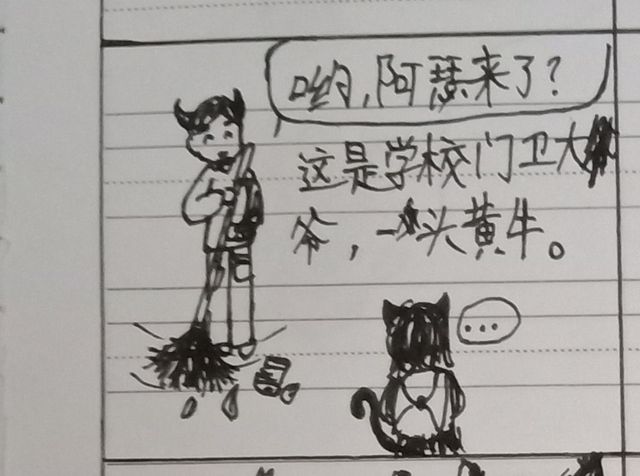 哟，阿瑟来了？
这是学校门卫大
爷，一头黄牛。
...